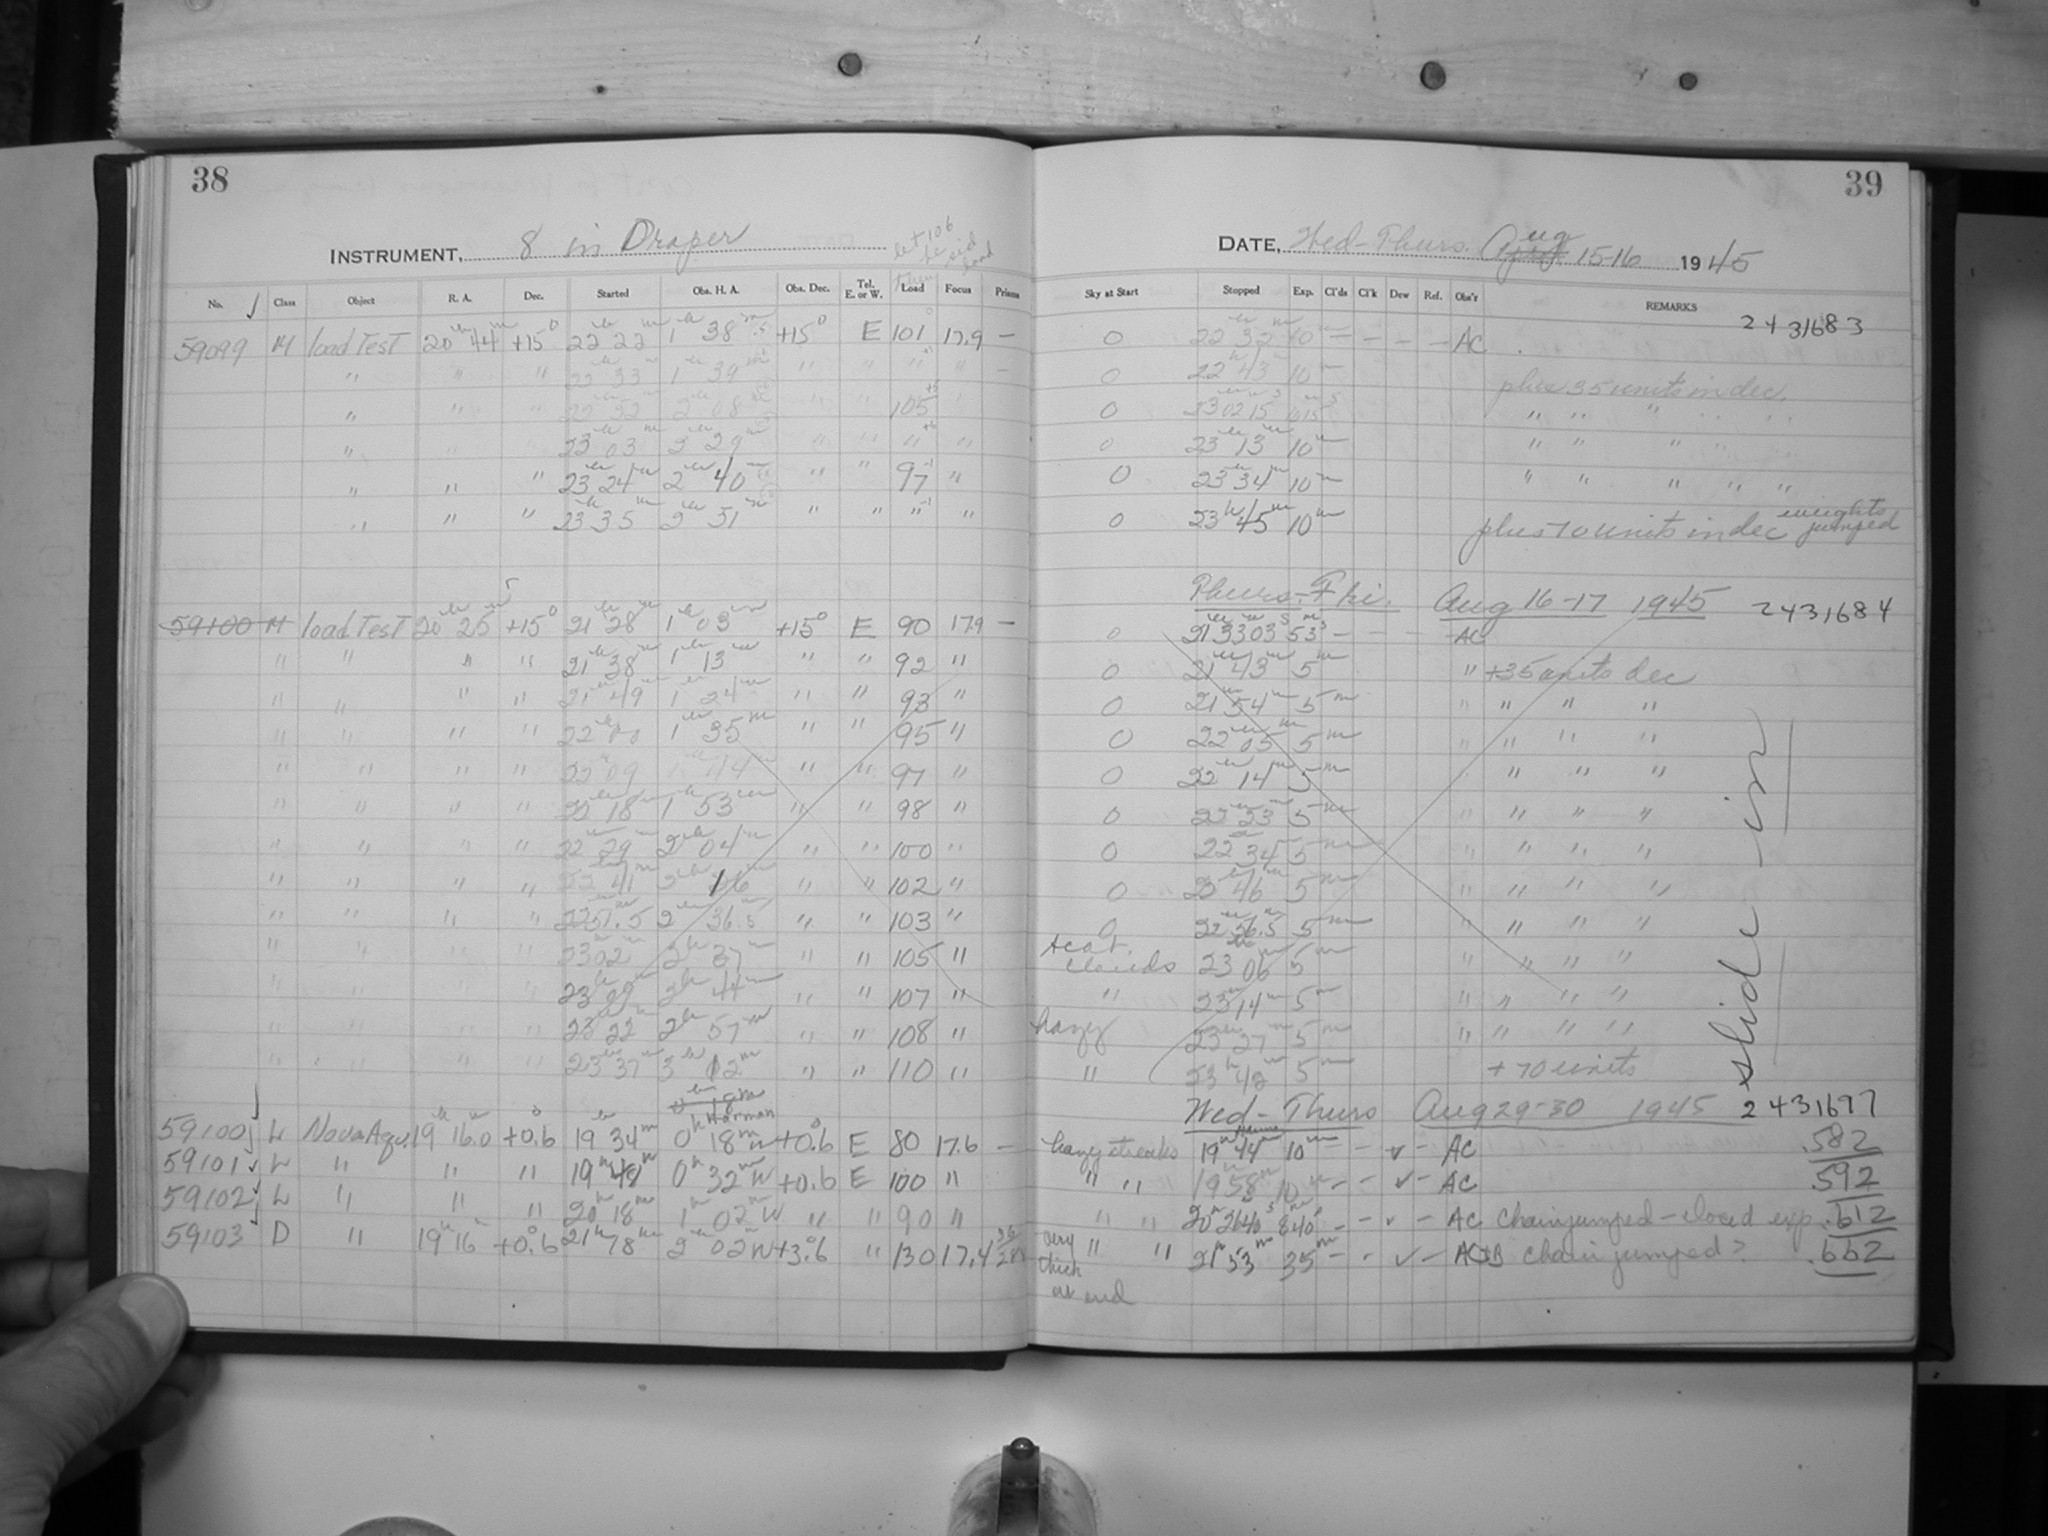 38
39
INSTRUMENT, 8 in Draper
let 106 be sid load
DATE, Wed-Thurs. Aug 15-16 1945
No. Class Object R. A. Dec. Started Obs. H. A. Obs. Dec. Tel. E. or W. Load Focus Prisms Sky at Start Stopped Exp. Cl'ds Cl'k Dew Ref. Obs'r REMARKS
2431683
59099 M load Test 20h 44m +15° 22h 22m 1h 38m.5 +15° E 101 17.9 — 0 22h 32m 10m — — — — AC
" " " 22 33 1h 39m " " " " — 0 22h 43m 10m plus 35 units in dec.
" " " 22 52 2h 08m " " 105 " 0 230215 " " " " "
" 23h 03m 2h 29m " " " " 0 23h 13m 10m " " " " "
" " " 23h 24m 2h 40m " " 97 " 0 23h 34m 10m " " " " "
" " " 23h 35m 2h 51m " " " " 0 23h 45m 10m plus 70 units in dec weights jumped
Thurs-Fri. Aug 16-17 1945 2431684
59100 M load Test 20h 25m +15° 21h 28m 1h 03m +15° E 90 17.9 — 0 21h 33m 03s 5m 3s — — — AC
" " " " 21h 38m 1h 13m " " 92 " 0 21h 43m 5m " +35 units dec
" " " " 21h 49m 1h 24m " " 93 " 0 21h 54m 5m " " " "
" " " " 22h 00 1h 35m " " 95 " 0 22h 05m 5m " " " "
" " " " 22 09 1h 44m " " 97 " 0 22h 14m 5m " " " "
" " " " 22h 18m 1h 53m " " 98 " 0 22h 23m 5m " " " "
" " " " 22h 29m 2h 04m " " 100 " 0 22h 34m 5m " " " "
" " " " 22 41m 2h 16m " " 102 " 0 22h 46m 5m " " " "
" " " " 2251.5 2h 36.5 " " 103 " 0 22h 56.5 5m " " " "
" " " " 23h 02m 2h 37m " " 105 " scat. clouds 23 06m 5m " " " "
" " " " 23h 09m 2h 44m " " 107 " " 23h 14m 5m " " " "
" " " " 23h 22m 2h 57m " " 108 " hazy 23h 27m 5m " " " "
" " " " 23h 37m 3h 12m " " 110 " " 23h 42m 5m +70 units
slide in
0h 18m
Wed-Thurs Aug 29-30 1945 2431697
59100 L Nova Aql. 19h 16.0m +0.6° 19h 34m 0h 18m W +0.6° E 80 17.6 — hazy streaks 19h 44m 10m — - ✓ — AC .582
59101 L " " " 19h 48m 0h 32m W +0.6 E 100 " " " 19h 58m 10m — - ✓ — AC .592
59102 L " " " 20h 18m 1h 02m W " " 90 " " " 20h 26m 40s 8m 40s — - ✓ — AC chain jumped - closed exp. .612
59103 D " 19h 16m +0.6° 21h 18m 2h 02m W +3.6° " 130 17.4 very " " thick at end 21h 53m 35m — - ✓ — AC chain jumped? .662